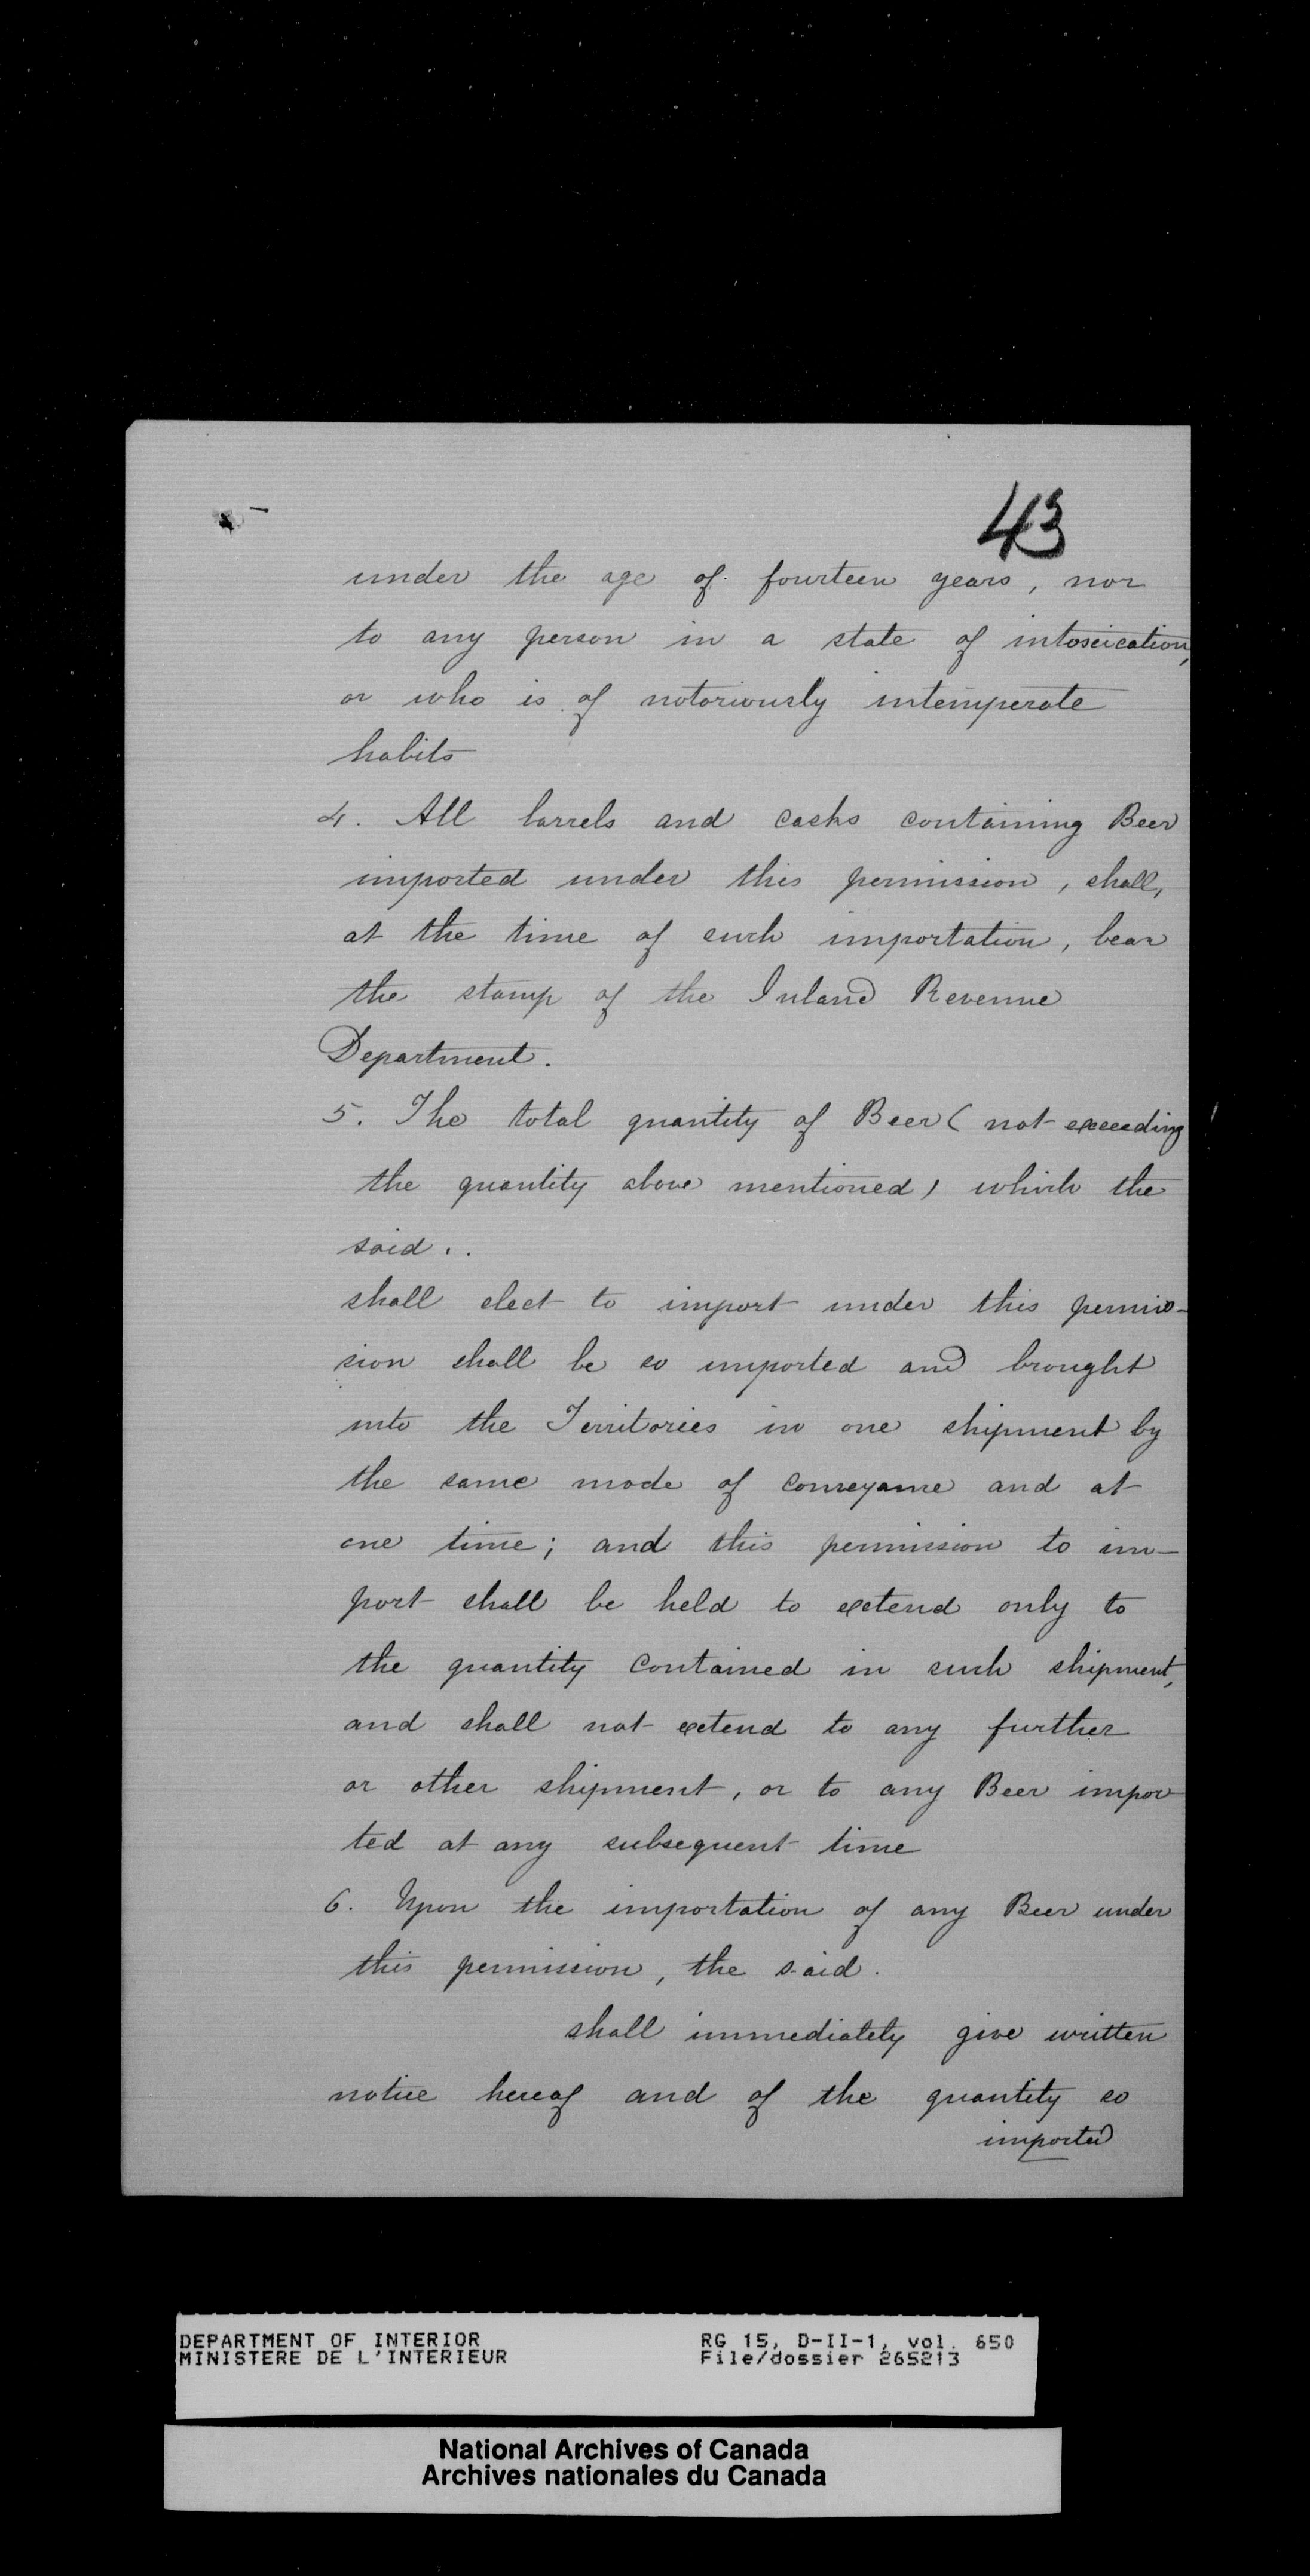 43
under the age of fourteen years, nor
to any person in a state of intoxication,
or who is of notoriously intemperate
habits
4. All barrels and casks containing Beer
imported under this permission, shall,
at the time of such importation, bear
the stamp of the Inland Revenue
Department.
5. The total quantity of Beer (not exceeding
the quantity above mentioned) which the
said..
shall elect to import under this permis-
sion shall be so imported and brought
into the Territories in one shipment by
the same mode of conveyance and at
one time; and this permission to im-
port shall be held to extend only to
the quantity contained in such shipment,
and shall not extend to any further
or other shipment, or to any Beer impor
ted at any subsequent time
6. Upon the importation of any Beer under
this permission, the said.
shall immediately give written
notice hereof and of the quantity so
imported
DEPARTMENT OF INTERIOR RG 15, D-II-1, vol. 650
MINISTERE DE L'INTERIEUR File/dossier 265213
National Archives of Canada
Archives nationales du Canada